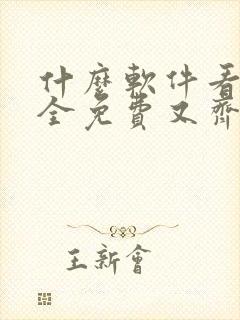 什麼軟件看
全免費又齊
王新會